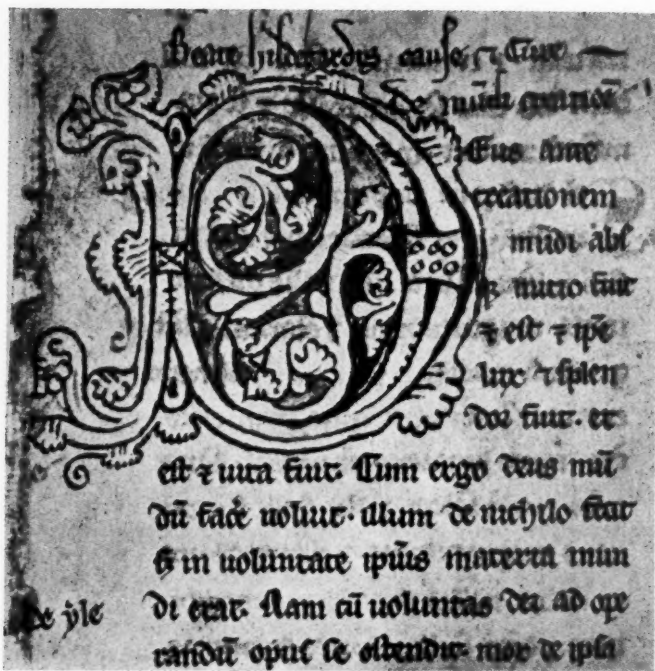 Beate hildegardis cause ⁊ Cure
De mūdi creatiōe
Eus ante
creationem
mūdi abſ
inicio fuit
⁊ eſt ⁊ ip̄e
lux ⁊ ſplen
dor fuit. et
eſt ⁊ uita fuit. Cum ergo deus mū
dū facere uoluit. illum de nichilo fecit
in uoluntate ipīus materia mun
De ẏle
di erat. Nam cū uoluntas dei ad ope
randū opuſ ſe oſtendit. mox de ipſa